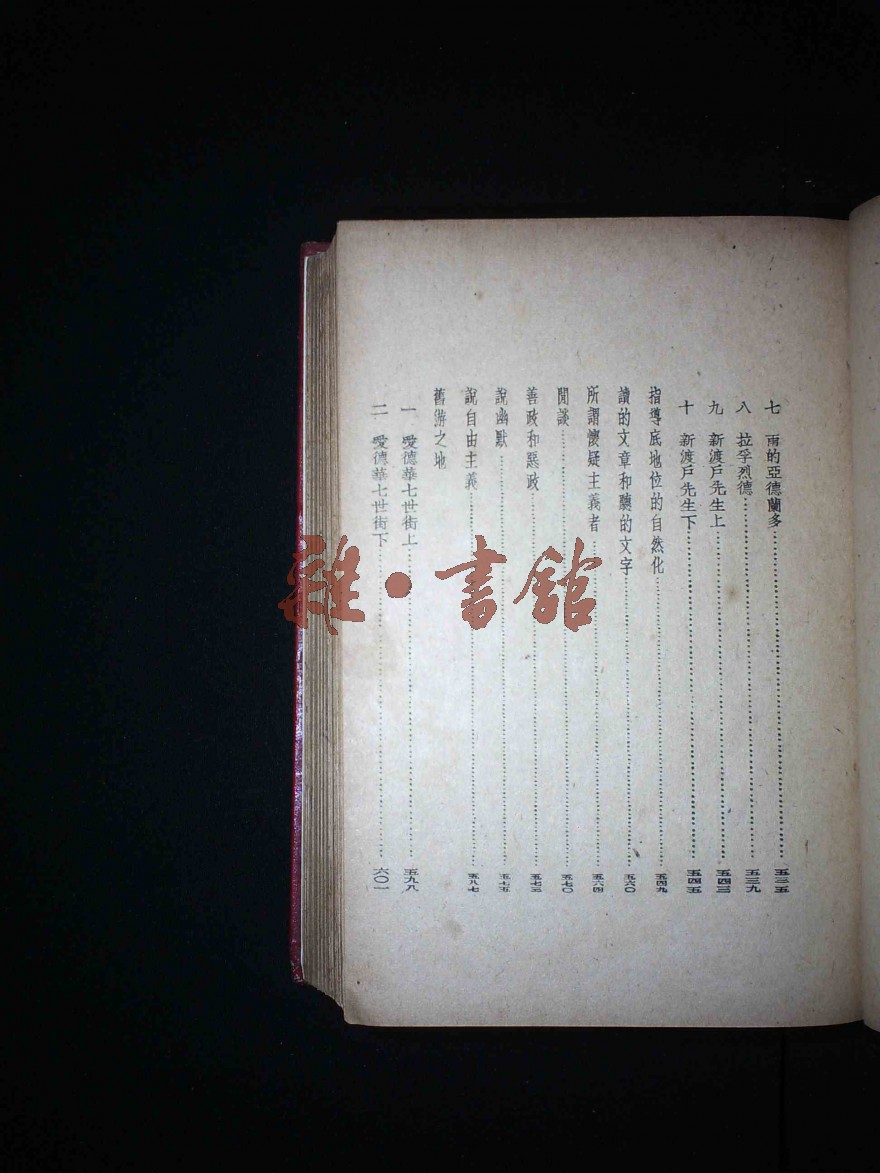 七　雨的亞德蘭多……五三五
八　拉孚烈德……五三九
九　新渡戶先生上……五四三
十　新渡戶先生下……五四五
指導底地位的自然化……五四九
讀的文章和聽的文字……五六〇
所謂懷疑主義者……五六四
閒談……五七〇
善政和惡政……五七三
說幽默……五七五
說自由主義……五八七
舊游之地
一　愛德華七世街上……五九八
二　愛德華七世街下……六〇一
雜·書館